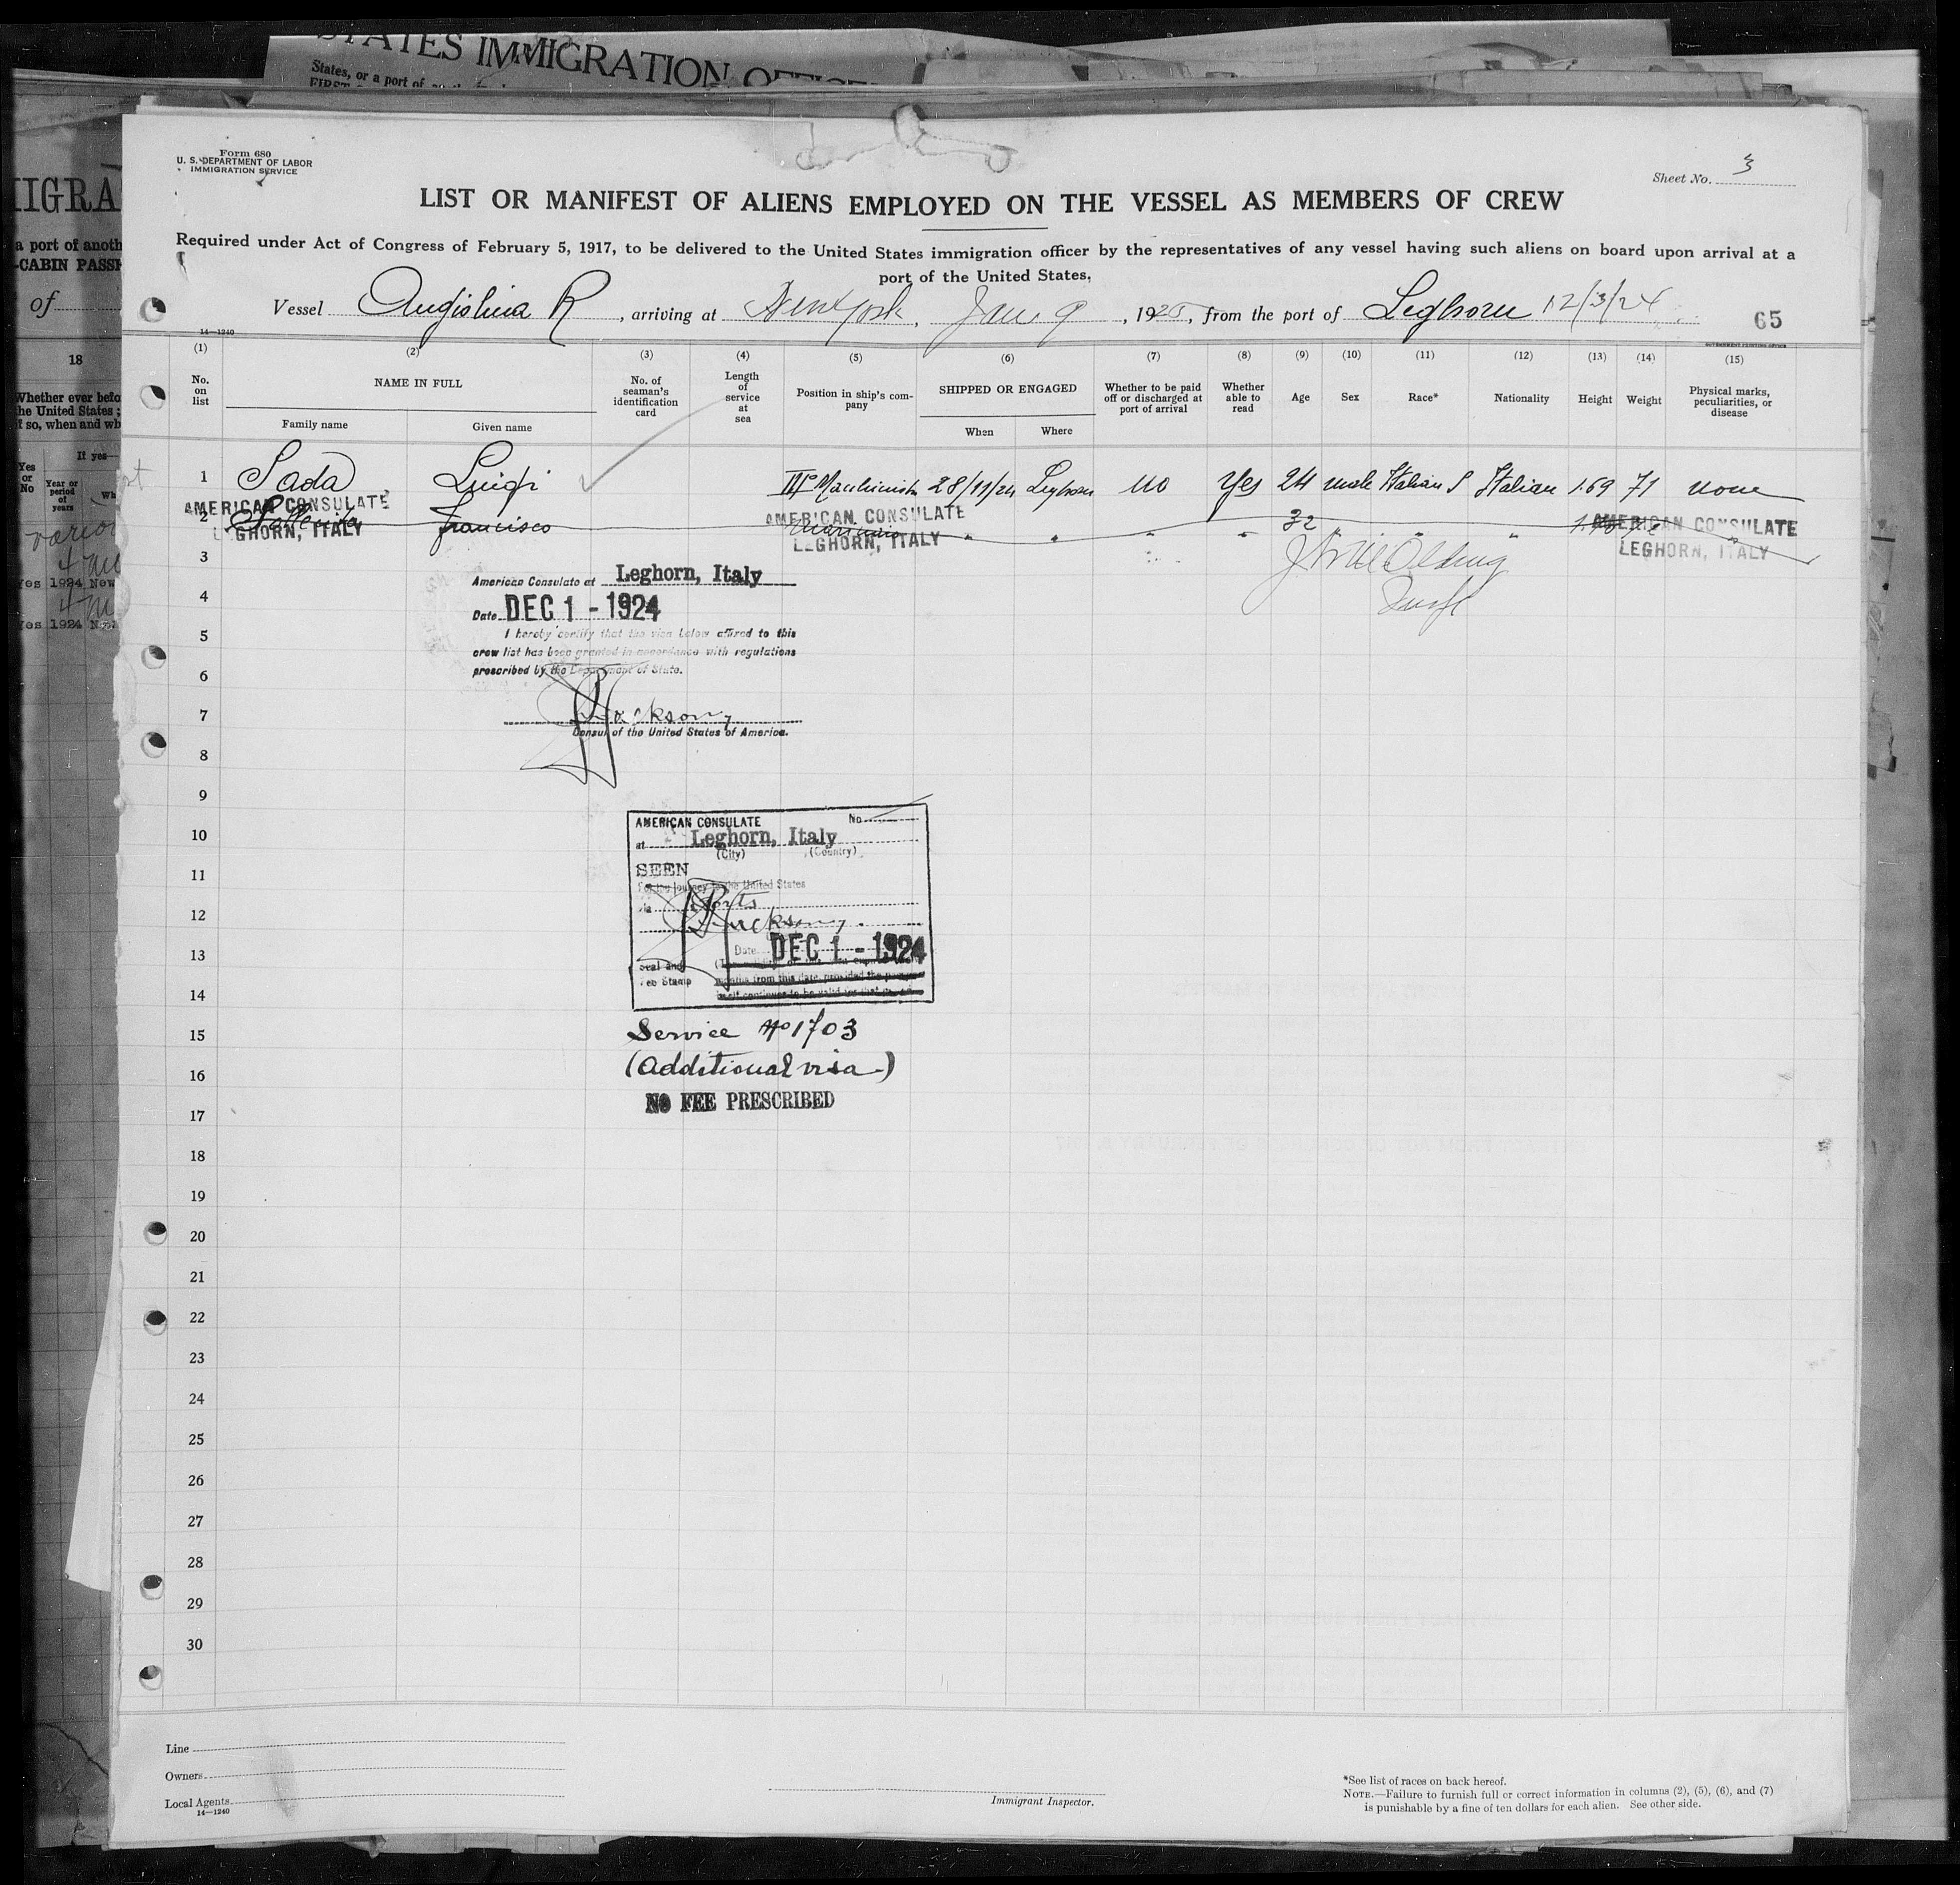 STATES IMMIGRATION
States, or a port of
FIRST
IIGRA
a port of anoth
-CABIN PASS
of
18
Whether ever befo
the United States ;
if so, when and wh
If yes—
Yes or No
Year or period of years
Wh
Yes 1924 New
Yes 1924 New
Form 680
U. S. DEPARTMENT OF LABOR
IMMIGRATION SERVICE
Sheet No. 3
LIST OR MANIFEST OF ALIENS EMPLOYED ON THE VESSEL AS MEMBERS OF CREW
Required under Act of Congress of February 5, 1917, to be delivered to the United States immigration officer by the representatives of any vessel having such aliens on board upon arrival at a
port of the United States,
Vessel Angiolina R, arriving at New York, Jan 9, 1925, from the port of Leghorn 12/3/24
65
14—1240
GOVERNMENT PRINTING OFFICE
(1) (2) (3) (4) (5) (6) (7) (8) (9) (10) (11) (12) (13) (14) (15)
No. on list
NAME IN FULL
Family name
Given name
No. of seaman's identification card
Length of service at sea
Position in ship's company
SHIPPED OR ENGAGED
When
Where
Whether to be paid off or discharged at port of arrival
Whether able to read
Age
Sex
Race*
Nationality
Height
Weight
Physical marks, peculiarities, or disease
1 Sada Luigi III Macchinista 28/11/24 Leghorn no Yes 24 male Italian S Italian 1.69 71 none
AMERICAN CONSULATE
LEGHORN, ITALY
2 Francisco " " " " 32 " "
AMERICAN CONSULATE
LEGHORN, ITALY
AMERICAN CONSULATE
LEGHORN, ITALY
3
4
5
6
7
8
9
10
11
12
13
14
15
16
17
18
19
20
21
22
23
24
25
26
27
28
29
30
American Consulate at Leghorn, Italy
Date DEC 1 - 1924
I hereby certify that the visa below affixed to this
crew list has been granted in accordance with regulations
prescribed by the Department of State.
Jackson
Consul of the United States of America.
AMERICAN CONSULATE No.
at Leghorn, Italy
(City) (Country)
SEEN
For the journey to the United States
via Ports
Jackson
Date DEC 1 - 1924
Seal and
Fee Stamp
months from this date, provided the
itself continues to be valid for that
Service No 1703
(Additional visa)
NO FEE PRESCRIBED
Line
Owners
Local Agents
14—1240
Immigrant Inspector.
*See list of races on back hereof.
NOTE.—Failure to furnish full or correct information in columns (2), (5), (6), and (7)
is punishable by a fine of ten dollars for each alien. See other side.